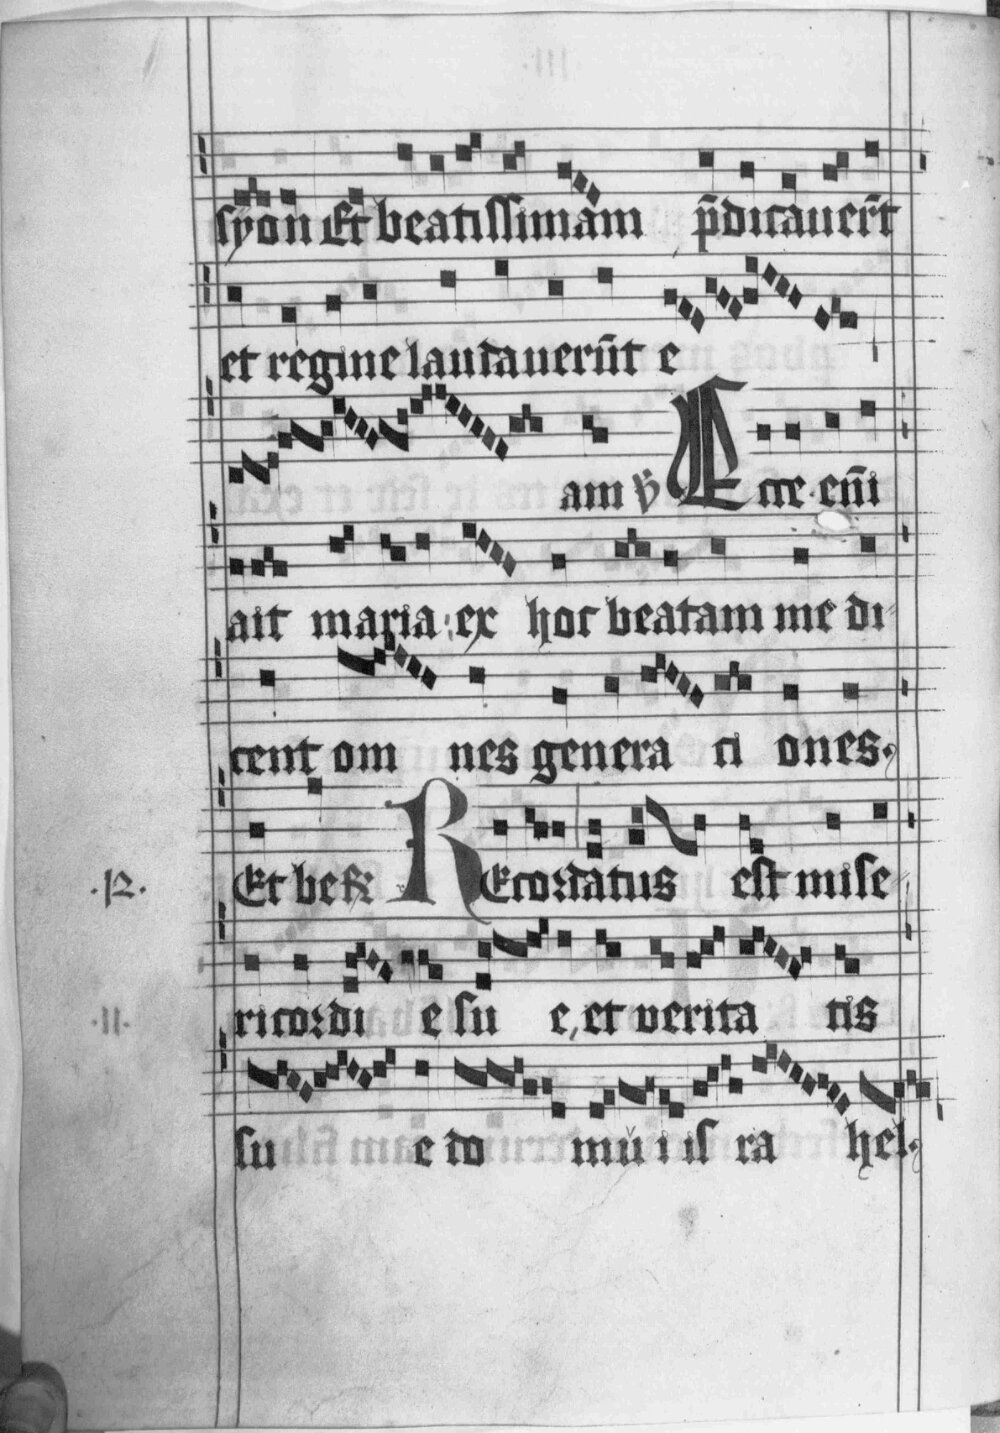 syon Et beatissimam p̄dicauer̄t
et regine laudauerūt e
am ꝟ Ecce eni̅
ait maria ex hoc beatam me di
cent om nes genera ci ones.
.R. Et be R Ecordatus est mise
.II. ricordi e su e, et verita tis
su e do mui is ra hel.